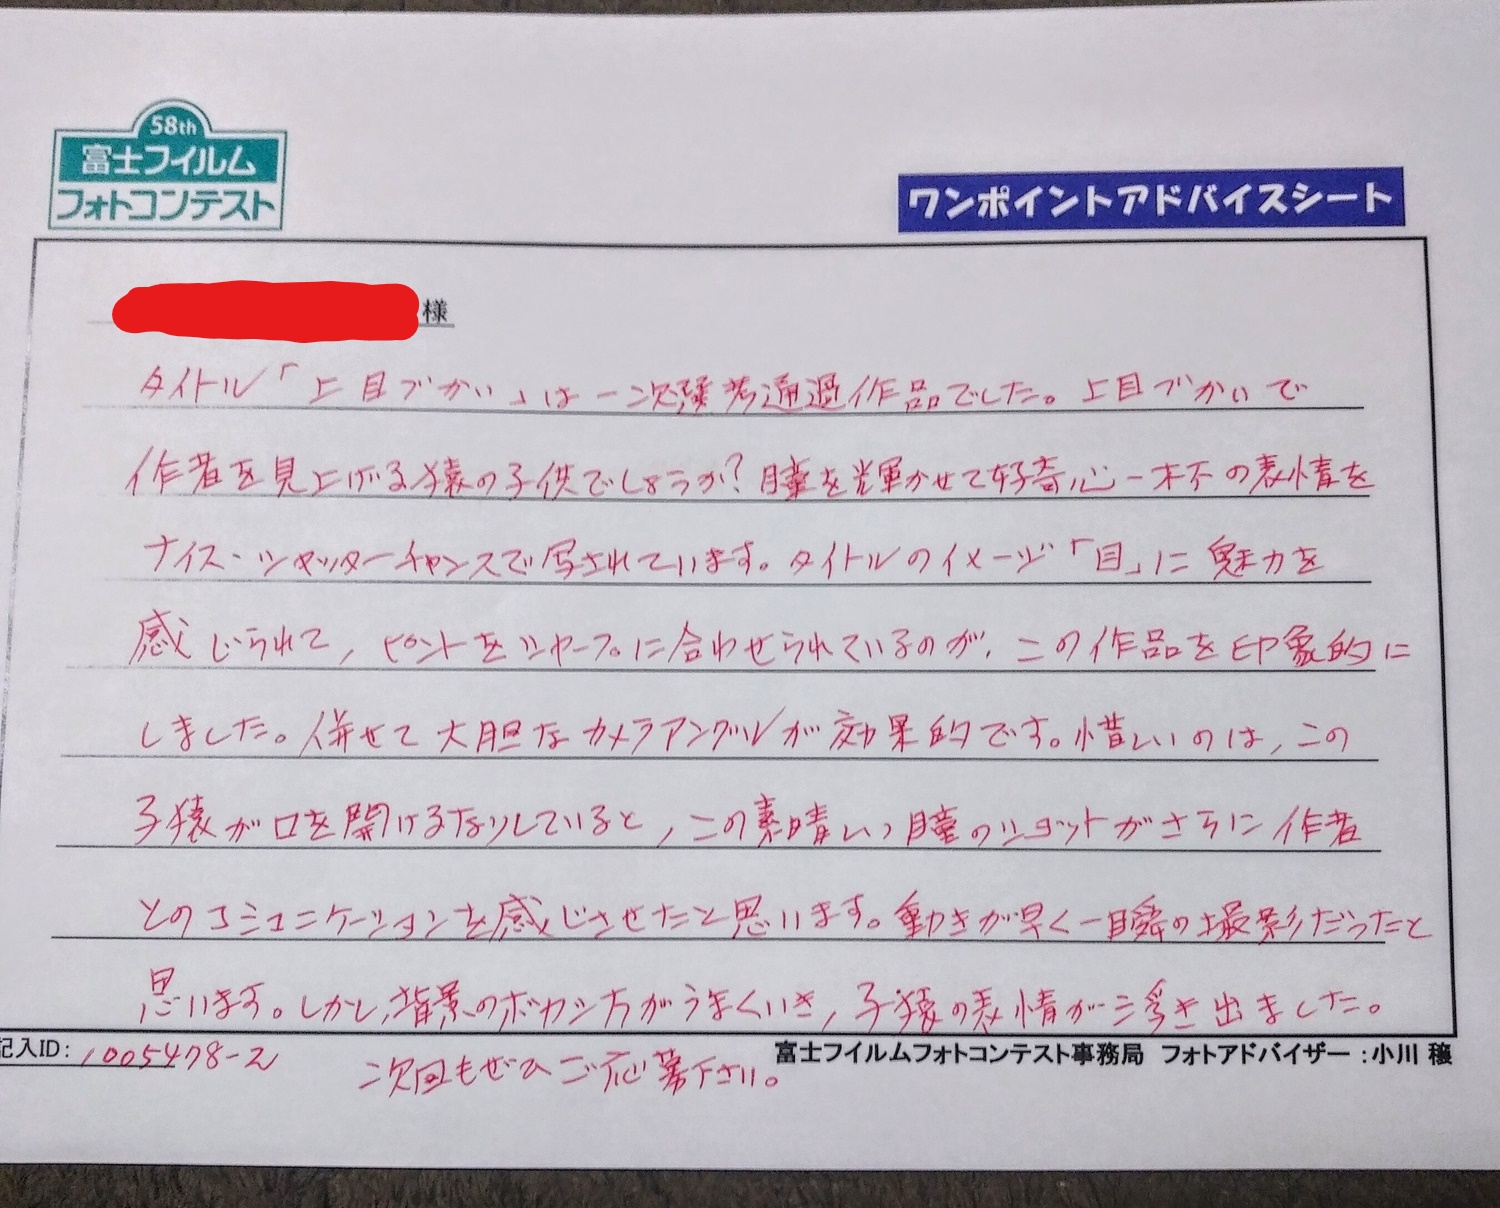 58th
富士フイルム
フォトコンテスト
ワンポイントアドバイスシート
様
タイトル「上目づかい」は一次選考通過作品でした。上目づかいで
作者を見上げる猿の子供でしょうか?瞳を輝かせて好奇心一杯の表情を
ナイス・シャッターチャンスで写されています。タイトルのイメージ「目」に魅力を
感じられて、ピントをシャープに合わせられているのが、この作品を印象的に
しました。併せて大胆なカメラアングルが効果的です。惜しいのは、この
子猿が口を開けるなりしていると、この素晴しい瞳のショットがさらに作者
とのコミュニケーションを感じさせたと思います。動きが早く一瞬の撮影だったと
思います。しかし、背景のボカシ方がうまくいき、子猿の表情が浮き出ました。
記入ID: 1005478-2
富士フイルムフォトコンテスト事務局 フォトアドバイザー:小川 穣
次回もぜひご応募下さい。